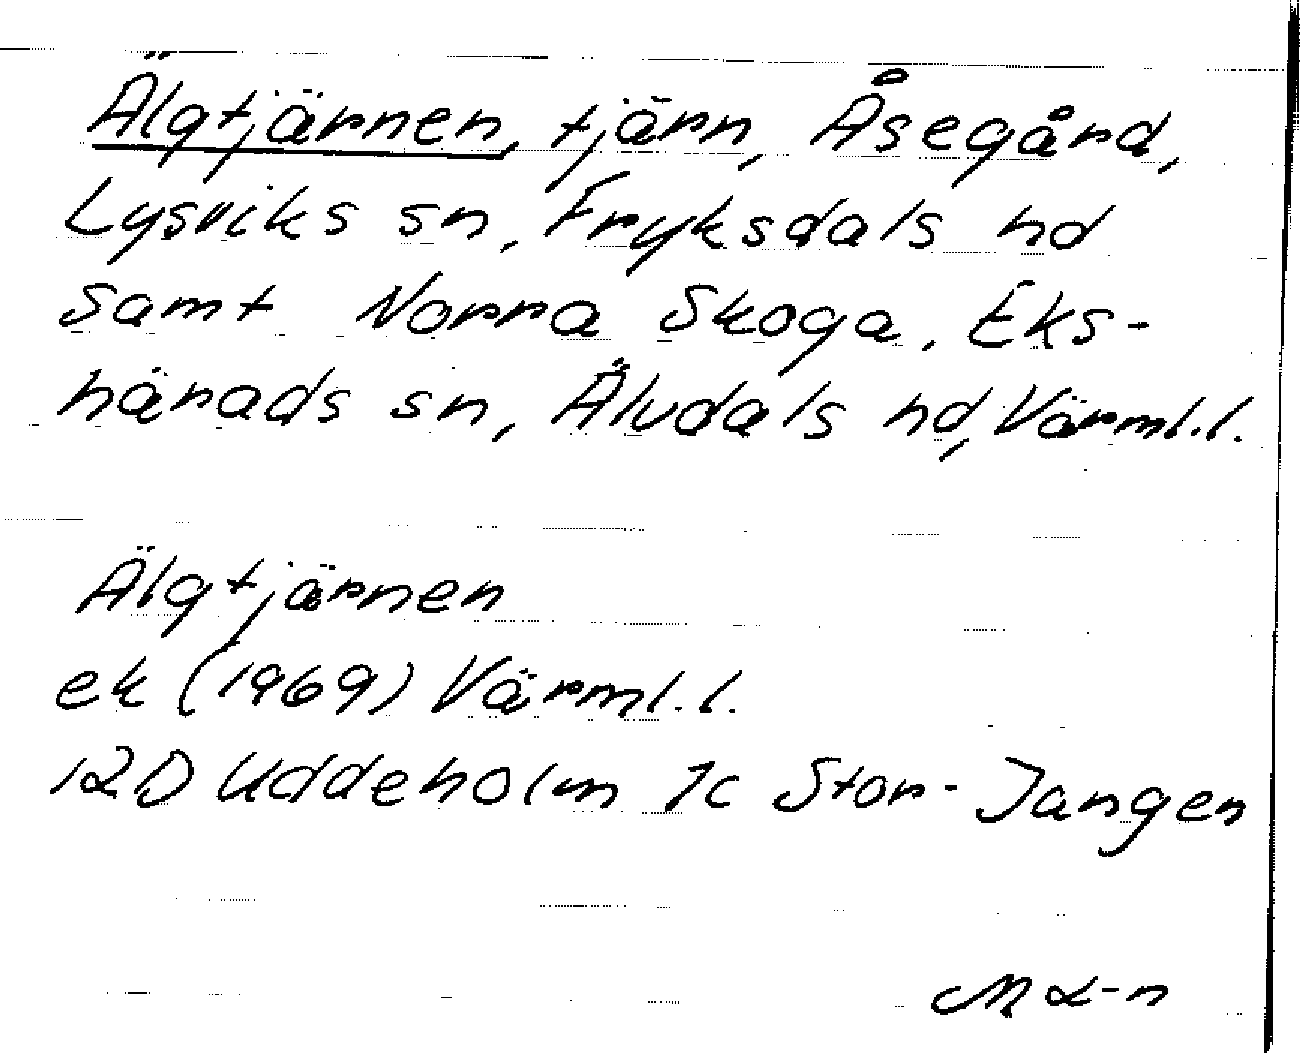 Älgtjärnen, tjärn, Åsegård,
Lysviks sn, Fryksdals hd
samt Norra Skoga, Eks-
härads sn, Älvdals hd, Värml.l.
Älgtjärnen
ek (1969) Värml.l.
12D Uddeholm 7c Stor-Jangen